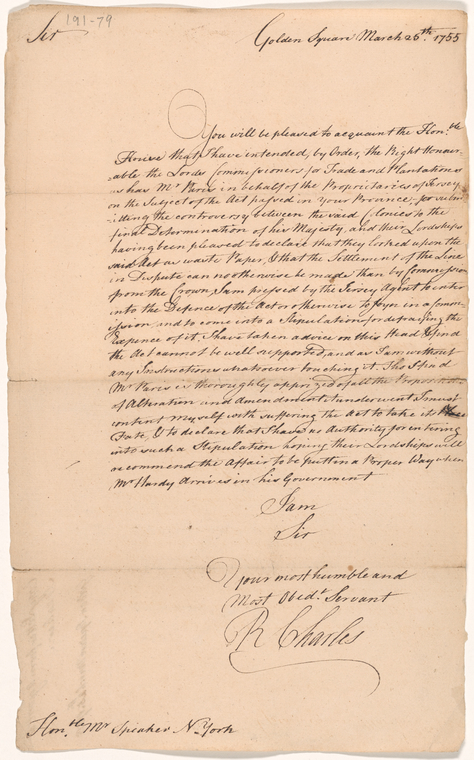 191-79
Sir
Golden Square March 26th. 1755
You will be pleased to acquaint the Hon.ble
House that I have intended, by Order, the Right Honour-
able the Lords Commissioners for Trade and Plantations
as has Mr Paris in behalf of the Proprietaries of Jersey
on the Subject of the Act passed in your Province, for subm-
itting the controversy between the said Colonies to the
final Determination of his Majesty, and their Lordships
having been pleased to declare that they looked upon the
said Act as waste Paper, & that the Settlement of the Line
in Dispute can no otherwise be made than by Commission
from the Crown, I am pressed by the Jersey Agent to enter
into the Defence of the Act or otherwise to joyn in a Comm-
ission and to come into a Stipulation for defraying the
Expence of it, I have taken advice on this Head & find
the Act cannot be well supported, and as I am without
any Instructions whatsoever touching it, this I find
Mr Paris is thoroughly apprized of all the
of Alteration and Amendments it underwent I must
content myself with suffering the Act to take it
Fate, & to declare that I have no Authority for entering
into such a Stipulation hoping their Lordships will
recommend the Affair to be put in a Proper Way when
Mr Hardy arrives in his Government
I am
Sir
Your most humble and
Most Obedt Servant
R Charles
Hon.ble Mr Speaker N-York